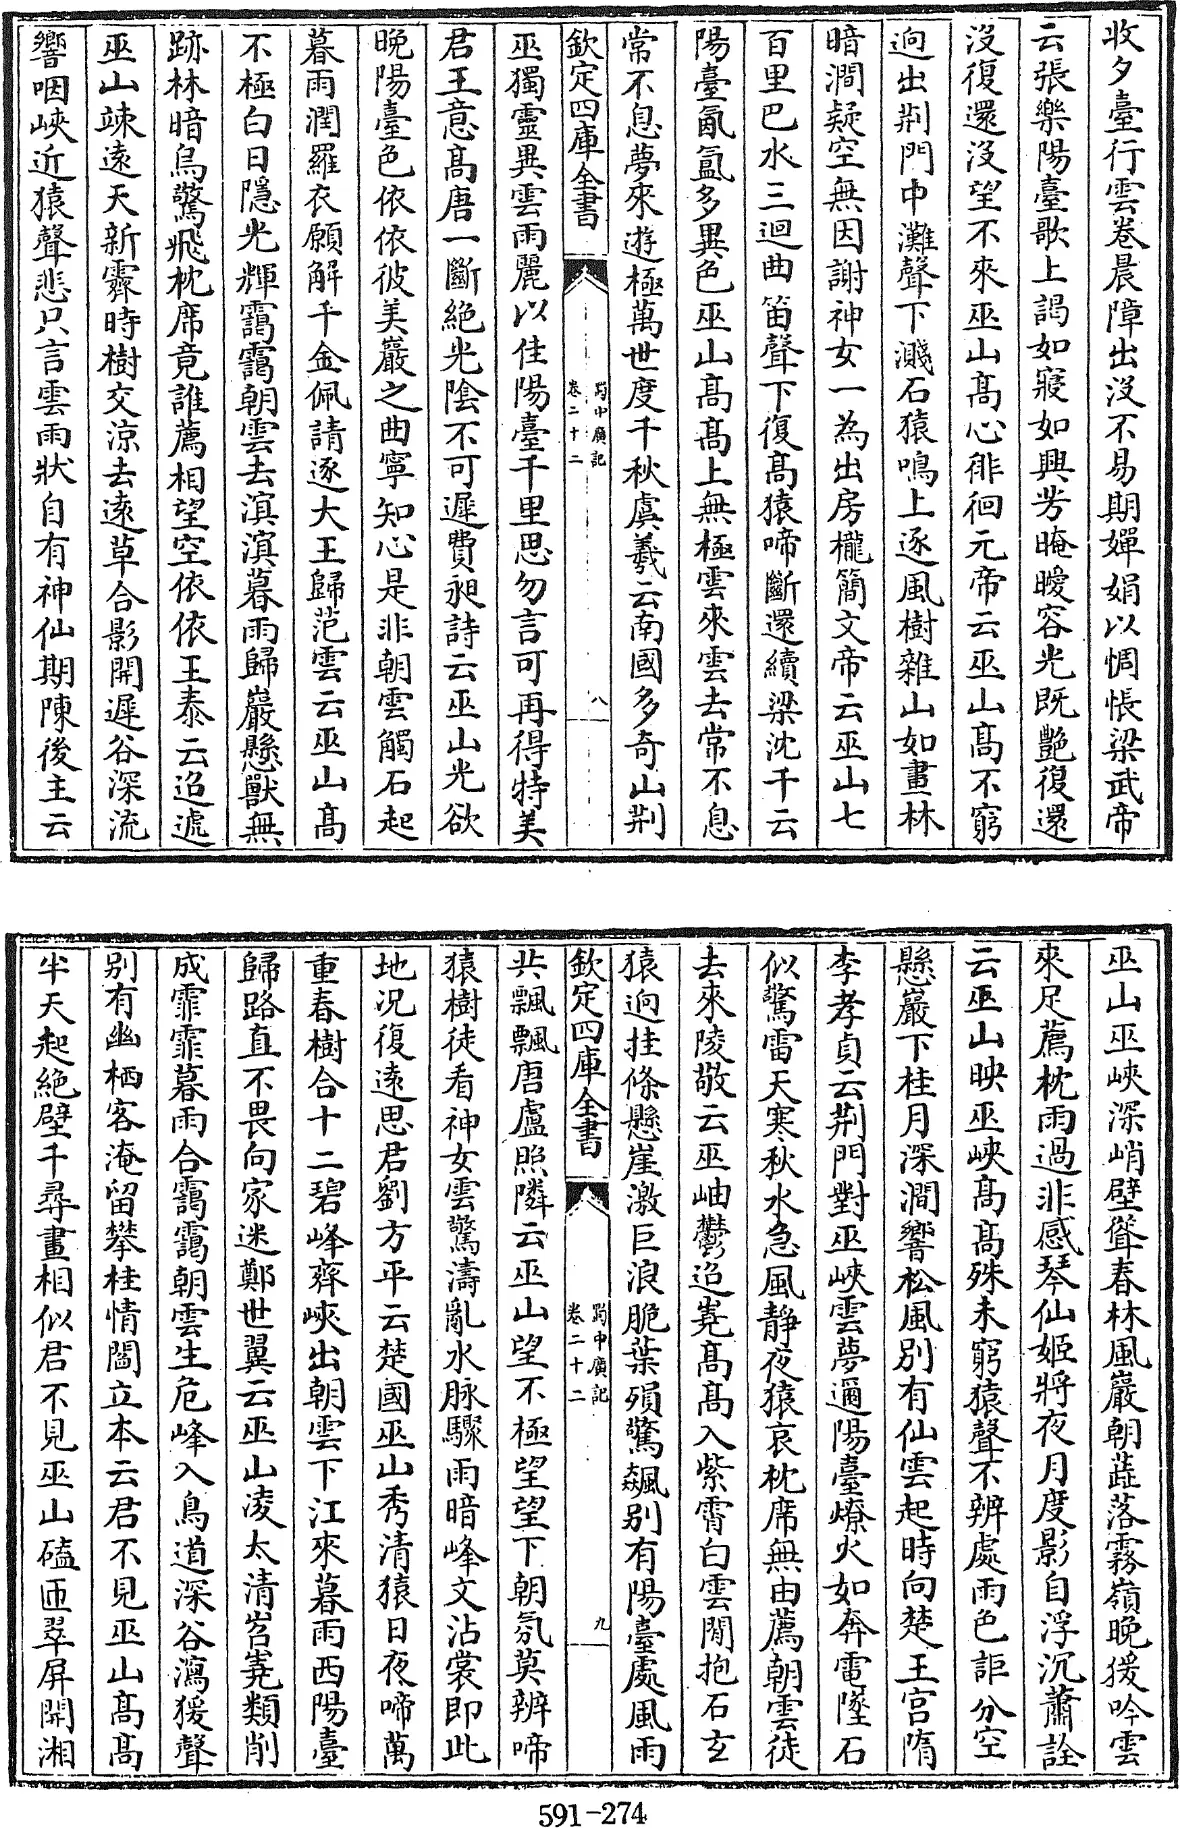 收夕臺行雲卷晨障出沒不易期嬋娟以惆悵梁武帝
云張樂陽臺歌上謁如寢如興芳晻曖容光既艷復還
沒復還沒望不來巫山髙心徘徊元帝云巫山髙不窮
逈出荆門中灘聲下濺石猿鳴上逐風樹雜山如畫林
暗澗疑空無因謝神女一為出房櫳簡文帝云巫山七
百里巴水三迴曲笛聲下復髙猿啼斷還續梁沈千云
陽臺氤氲多異色巫山髙髙上無極雲來雲去常不息
常不息夢來遊極萬世度千秋虞羲云南國多奇山荆
欽定四庫全書 蜀中廣記 卷二十二 八
巫獨靈異雲雨麗以佳陽臺千里思勿言可再得特美
君王意髙唐一斷絶光陰不可遲費昶詩云巫山光欲
晚陽臺色依依彼美巖之曲寧知心是非朝雲觸石起
暮雨潤羅衣願解千金佩請逐大王歸范雲云巫山髙
不極白日隱光輝靄靄朝雲去溟溟暮雨歸巖懸獸無
跡林暗鳥驚飛枕席竟誰薦相望空依依王泰云迢遞
巫山竦逺天新霽時樹交涼去逺草合影開遲谷深流
響咽峽近猿聲悲只言雲雨狀自有神仙期陳後主云
巫山巫峽深峭壁聳春林風巖朝蕋落霧嶺晚猨吟雲
來足薦枕雨過非感琴仙姬將夜月度影自浮沉蕭詮
云巫山映巫峽髙髙殊未窮猿聲不辨處雨色詎分空
懸巖下桂月深澗響松風别有仙雲起時向楚王宫隋
李孝貞云荆門對巫峽雲夢邇陽臺燎火如奔電墜石
似驚雷天寒秋水急風靜夜猿哀枕席無由薦朝雲徒
去來陵敬云巫岫鬱迢嶤髙髙入紫霄白雲閒抱石玄
猿逈挂條懸崖激巨浪脆葉殞驚飈别有陽臺處風雨
欽定四庫全書 蜀中廣記 卷二十二 九
共飄飄唐盧照隣云巫山望不極望望下朝氛莫辨啼
猿樹徒看神女雲驚濤亂水脉驟雨暗峰文沾裳即此
地况復逺思君劉方平云楚國巫山秀清猿日夜啼萬
重春樹合十二碧峰齊峽出朝雲下江來暮雨西陽臺
歸路直不畏向家迷鄭世翼云巫山凌太清岧嶤類削
成霏霏暮雨合靄靄朝雲生危峰入鳥道深谷瀉猨聲
别有幽栖客淹留攀桂情閻立本云君不見巫山髙髙
半天起絶壁千尋畫相似君不見巫山磕匝翠屏開湘
591-274